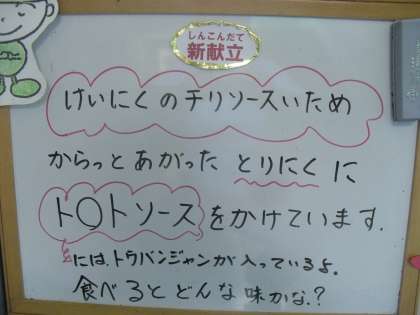 しんこんだて
新献立
けいにくのチリソースいため
からっとあがった とりにくに
ト○トソースをかけています.
には、トウバンジャンが入っているよ.
食べると どんな 味かな.?